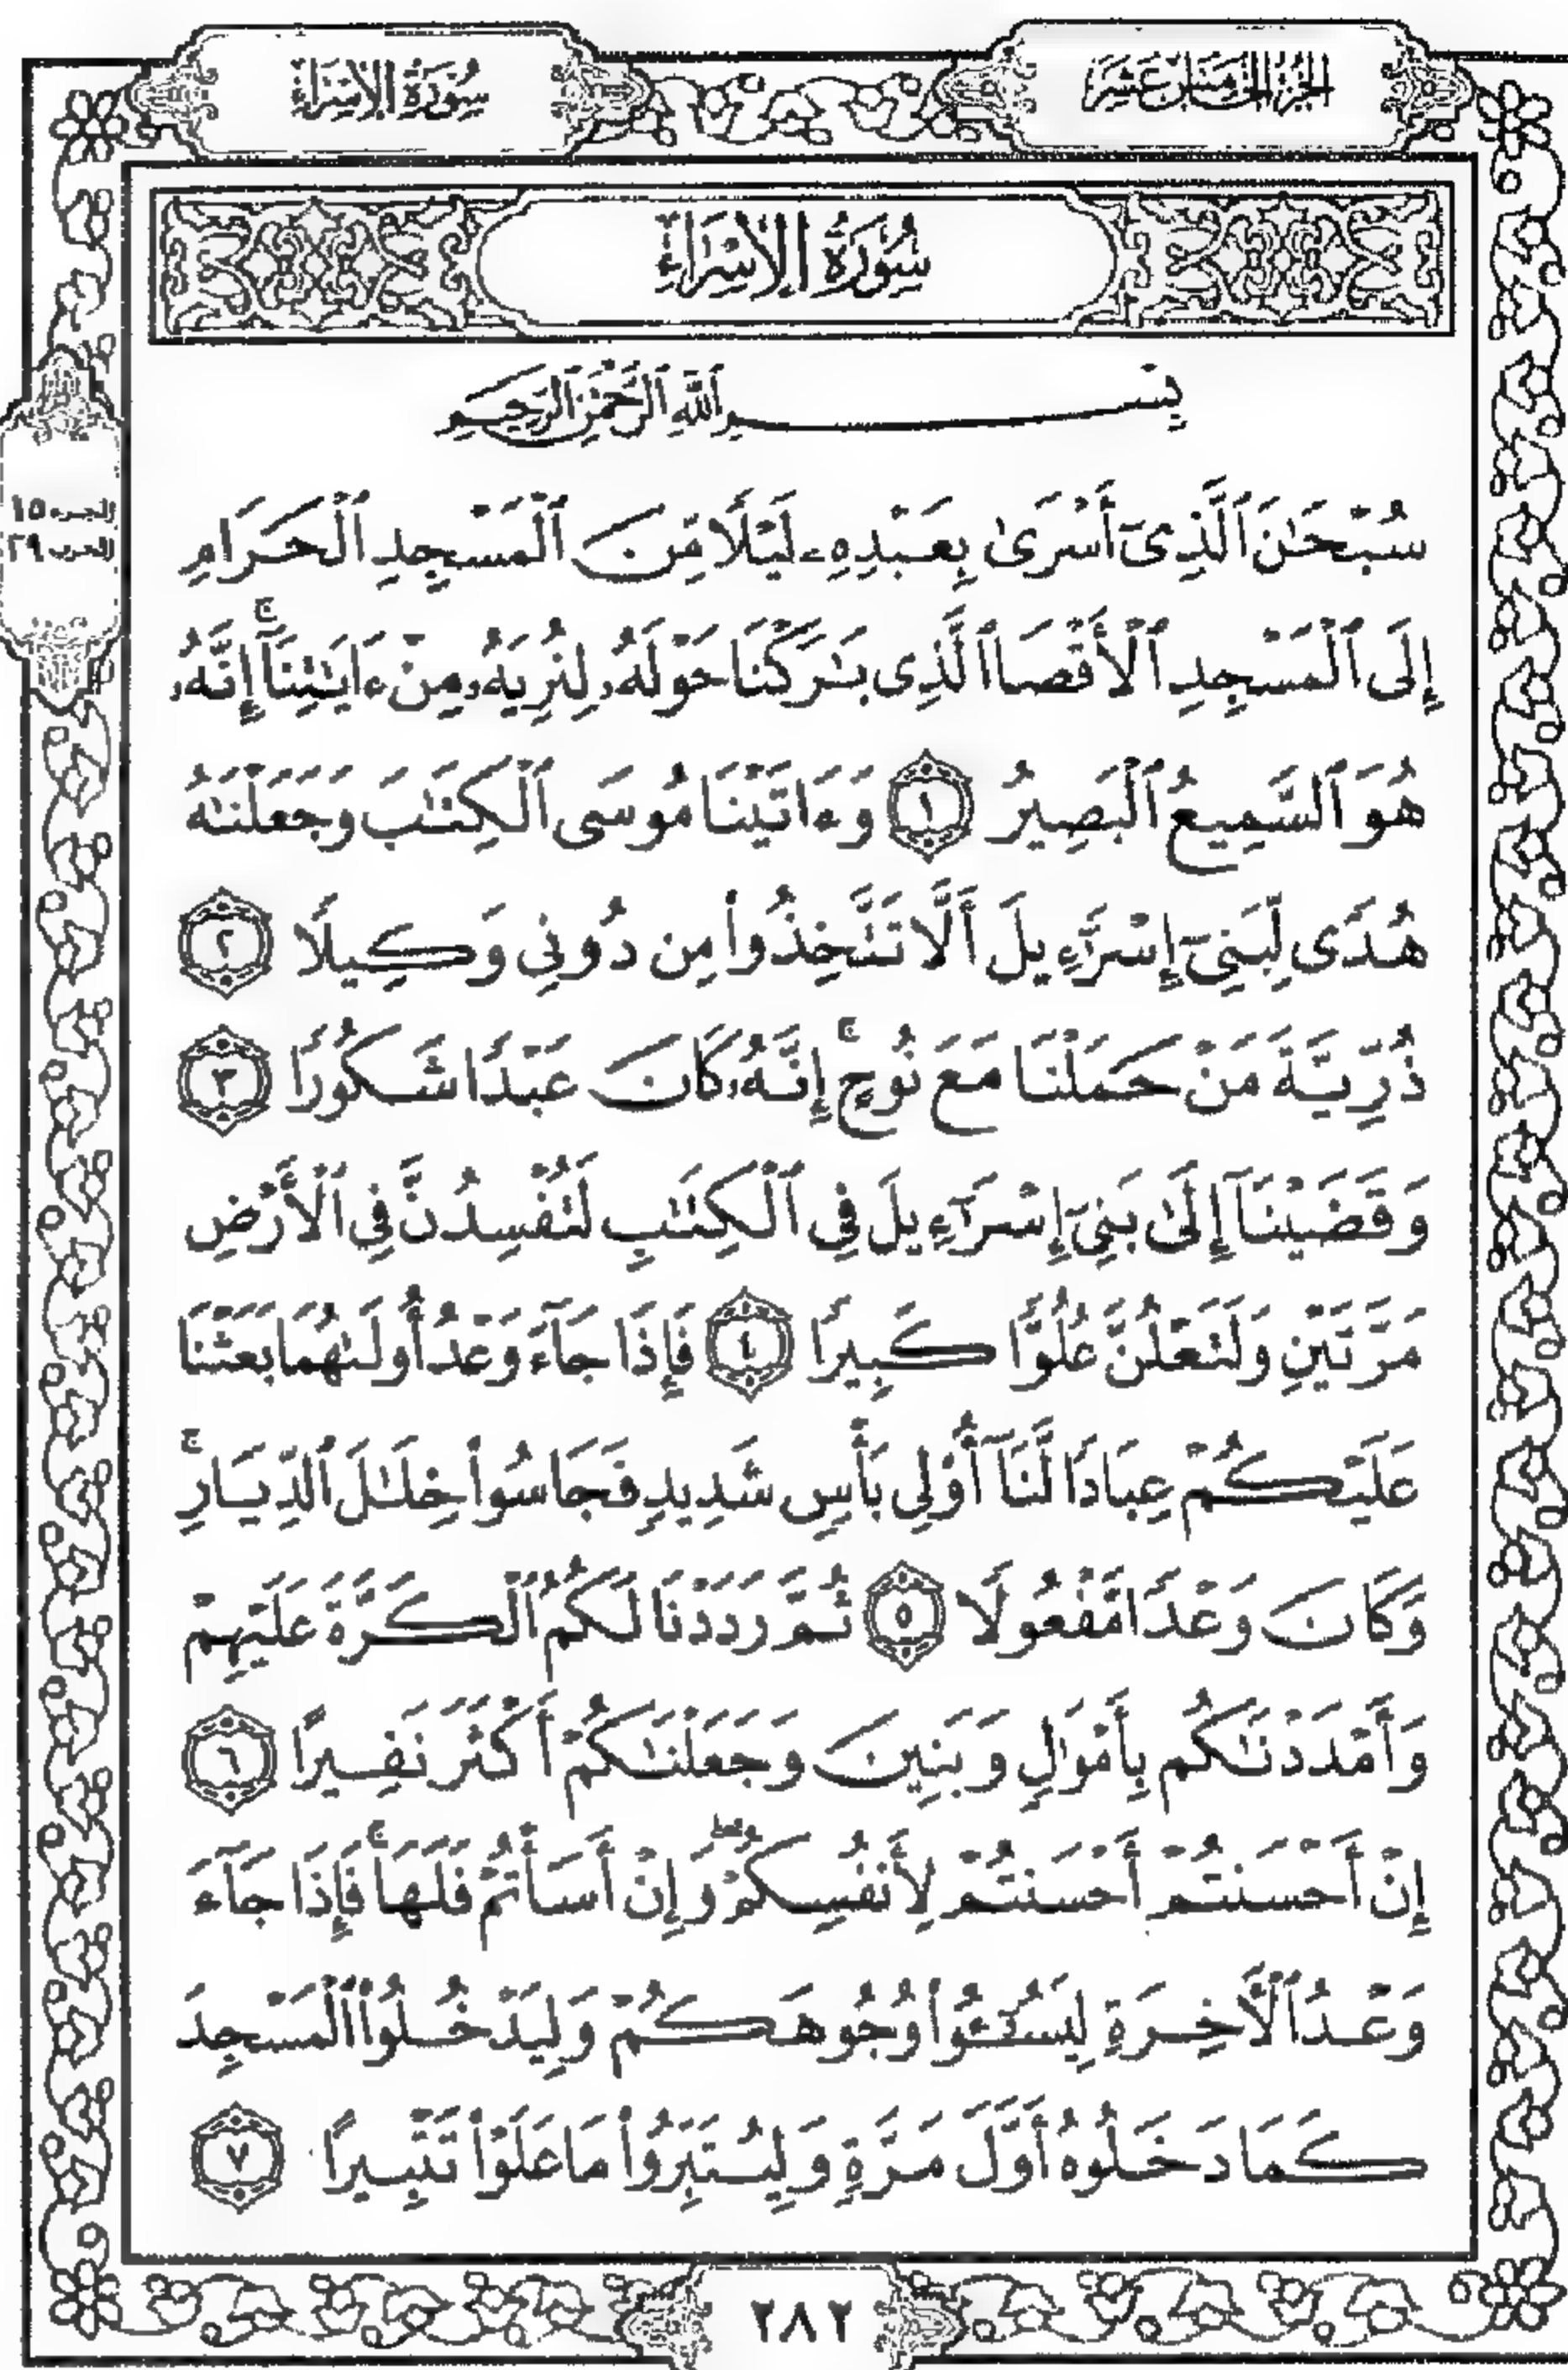 الجزء الخامس عشر
سورة الإسراء
سُورَةُ الإِسْرَاءِ
بِسْمِ ٱللَّهِ ٱلرَّحْمَٰنِ ٱلرَّحِيمِ
سُبْحَٰنَ ٱلَّذِىٓ أَسْرَىٰ بِعَبْدِهِۦ لَيْلًا مِّنَ ٱلْمَسْجِدِ ٱلْحَرَامِ
إِلَى ٱلْمَسْجِدِ ٱلْأَقْصَا ٱلَّذِى بَٰرَكْنَا حَوْلَهُۥ لِنُرِيَهُۥ مِنْ ءَايَٰتِنَآ ۚ إِنَّهُۥ
هُوَ ٱلسَّمِيعُ ٱلْبَصِيرُ ١ وَءَاتَيْنَا مُوسَى ٱلْكِتَٰبَ وَجَعَلْنَٰهُ
هُدًى لِّبَنِىٓ إِسْرَٰٓءِيلَ أَلَّا تَتَّخِذُوا۟ مِن دُونِى وَكِيلًا ٢
ذُرِّيَّةَ مَنْ حَمَلْنَا مَعَ نُوحٍ ۚ إِنَّهُۥ كَانَ عَبْدًا شَكُورًا ٣
وَقَضَيْنَآ إِلَىٰ بَنِىٓ إِسْرَٰٓءِيلَ فِى ٱلْكِتَٰبِ لَتُفْسِدُنَّ فِى ٱلْأَرْضِ
مَرَّتَيْنِ وَلَتَعْلُنَّ عُلُوًّا كَبِيرًا ٤ فَإِذَا جَآءَ وَعْدُ أُولَىٰهُمَا بَعَثْنَا
عَلَيْكُمْ عِبَادًا لَّنَآ أُو۟لِى بَأْسٍ شَدِيدٍ فَجَاسُوا۟ خِلَٰلَ ٱلدِّيَارِ ۚ
وَكَانَ وَعْدًا مَّفْعُولًا ٥ ثُمَّ رَدَدْنَا لَكُمُ ٱلْكَرَّةَ عَلَيْهِمْ
وَأَمْدَدْنَٰكُم بِأَمْوَٰلٍ وَبَنِينَ وَجَعَلْنَٰكُمْ أَكْثَرَ نَفِيرًا ٦
إِنْ أَحْسَنتُمْ أَحْسَنتُمْ لِأَنفُسِكُمْ ۖ وَإِنْ أَسَأْتُمْ فَلَهَا ۚ فَإِذَا جَآءَ
وَعْدُ ٱلْءَاخِرَةِ لِيَسُۥٓـُٔوا۟ وُجُوهَكُمْ وَلِيَدْخُلُوا۟ ٱلْمَسْجِدَ
كَمَا دَخَلُوهُ أَوَّلَ مَرَّةٍ وَلِيُتَبِّرُوا۟ مَا عَلَوْا۟ تَتْبِيرًا ٧
الجزء ١٥
الحزب ٢٩
٢٨٢